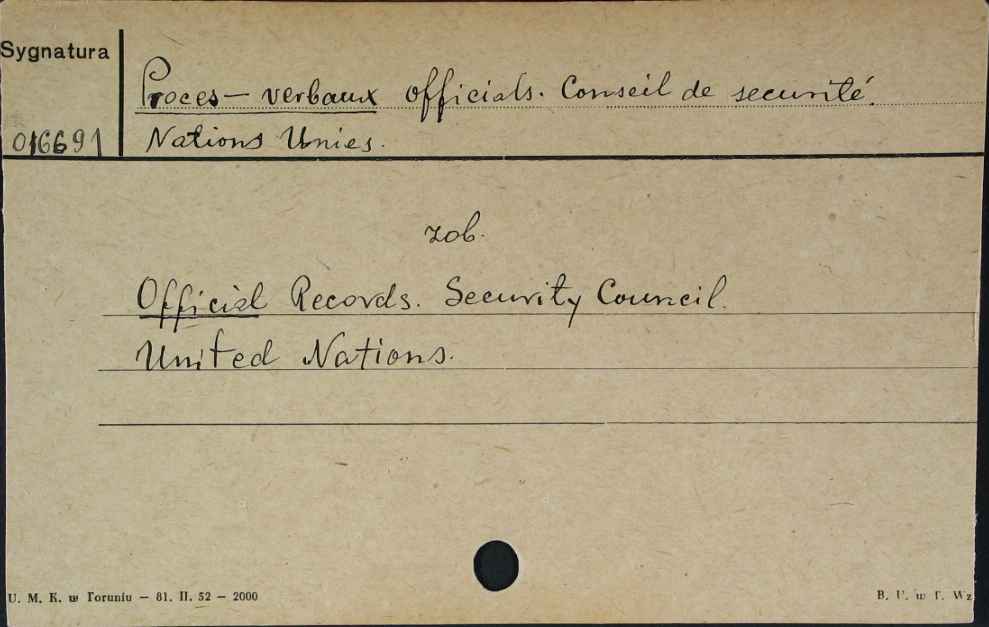 Sygnatura
Proces-verbaux officials. Conseil de securité.
016691 Nations Unies.
zob.
Official Records. Security Council.
United Nations.
U. M. K. w Toruniu — 81. II. 52 — 2000
B. U. w T. Wz